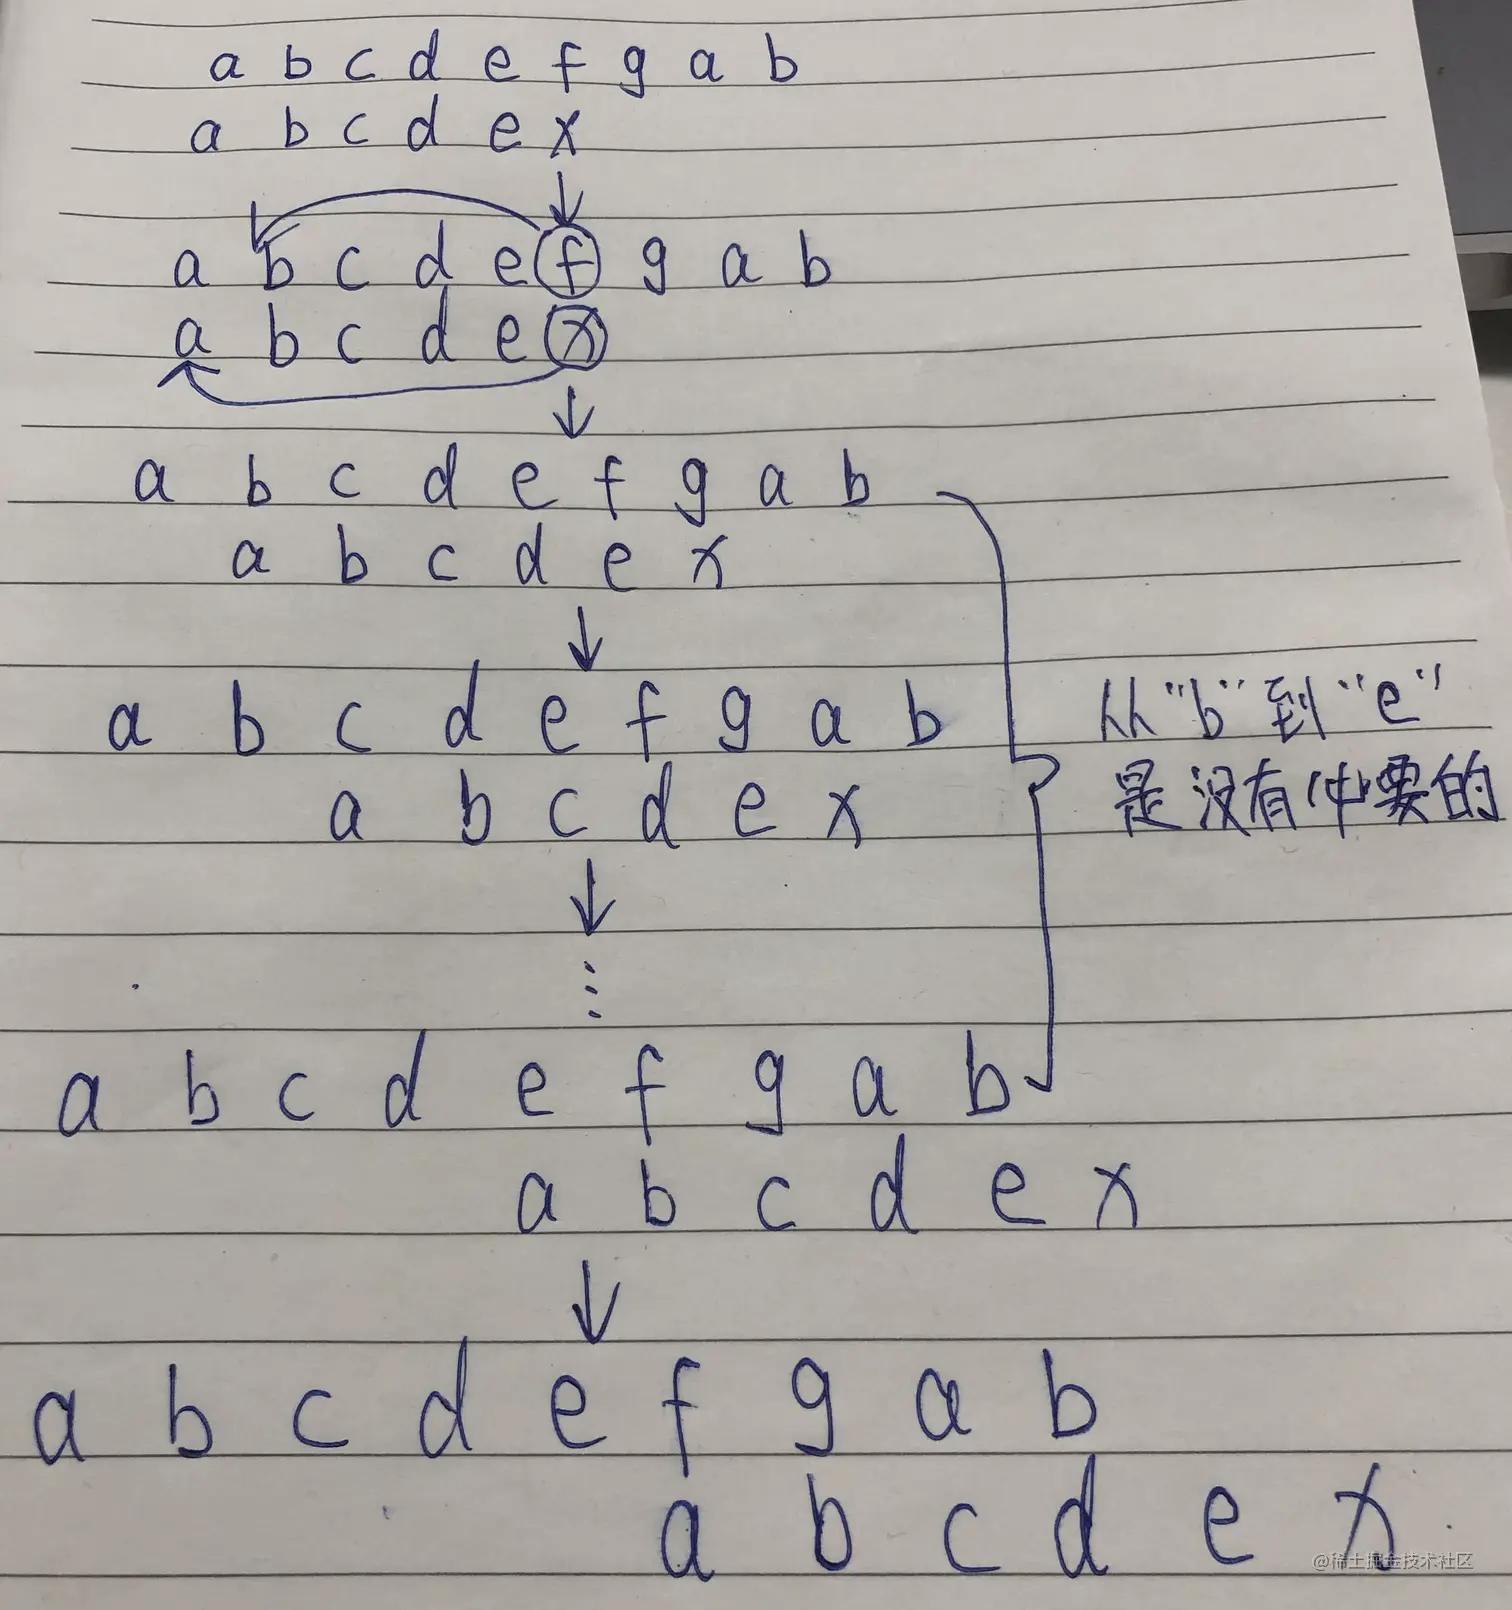 a b c d e f g a b
a b c d e x
a b c d e f g a b
a b c d e x
a b c d e f g a b
a b c d e x
a b c d e f g a b
a b c d e x
从"b"到"e"
是没有必要的
a b c d e f g a b
a b c d e x
a b c d e f g a b
a b c d e x
@稀土掘金技术社区